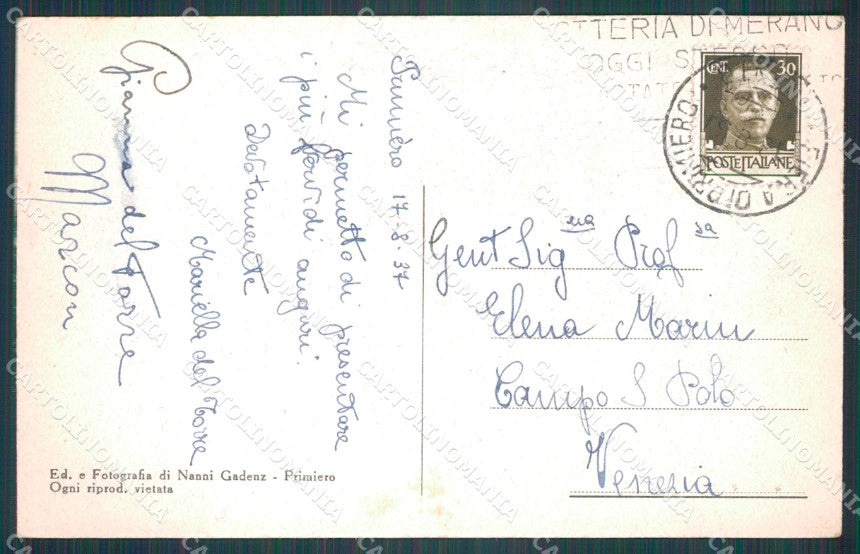 Primièro 17.8.37
Mi permetto di presentare
i più fervidi auguri.
Devotamente
Mariella del Torre
Gianna del Torre
Marcon
Ed. e Fotografia di Nanni Gadenz - Primiero
Ogni riprod. vietata
OTTERIA DI MERANO
OGGI
CENT. 30
POSTE ITALIANE
FIERA DI PRIMIERO
Gent Sig.na Prof.sa
Elena Marin
Campo S Polo
Venezia
CARTOLINOMANIA